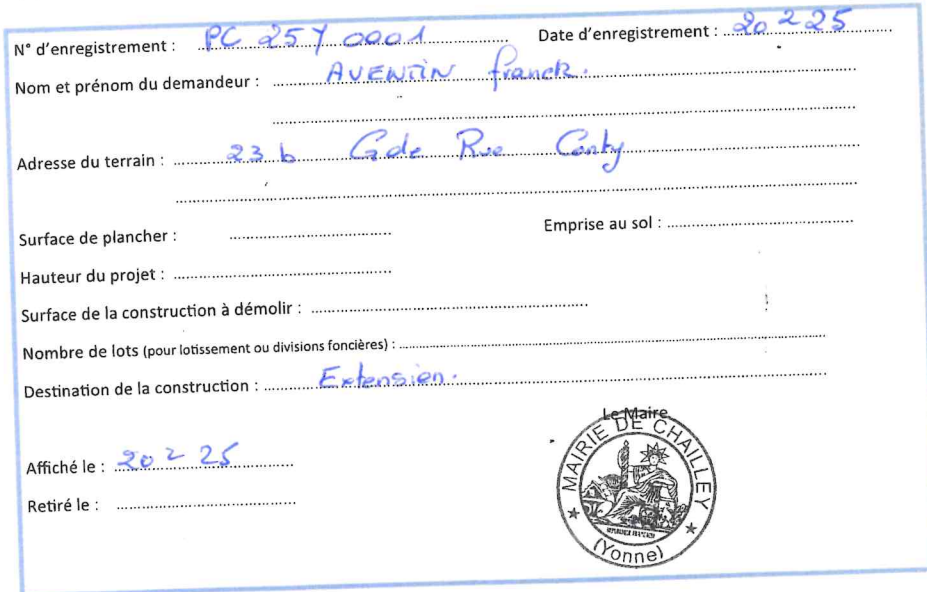 N° d'enregistrement : PC 25Y 0001 Date d'enregistrement : 20 2 25
Nom et prénom du demandeur : AVENTIN franck.
Adresse du terrain : 23 b Gde Rue Conty
Surface de plancher : Emprise au sol :
Hauteur du projet :
Surface de la construction à démolir :
Nombre de lots (pour lotissement ou divisions foncières) :
Destination de la construction : Extension.
Le Maire
Affiché le : 20 2 25
Retiré le :
MAIRIE DE CHAILLEY
REPUBLIQUE FRANÇAISE
(Yonne)